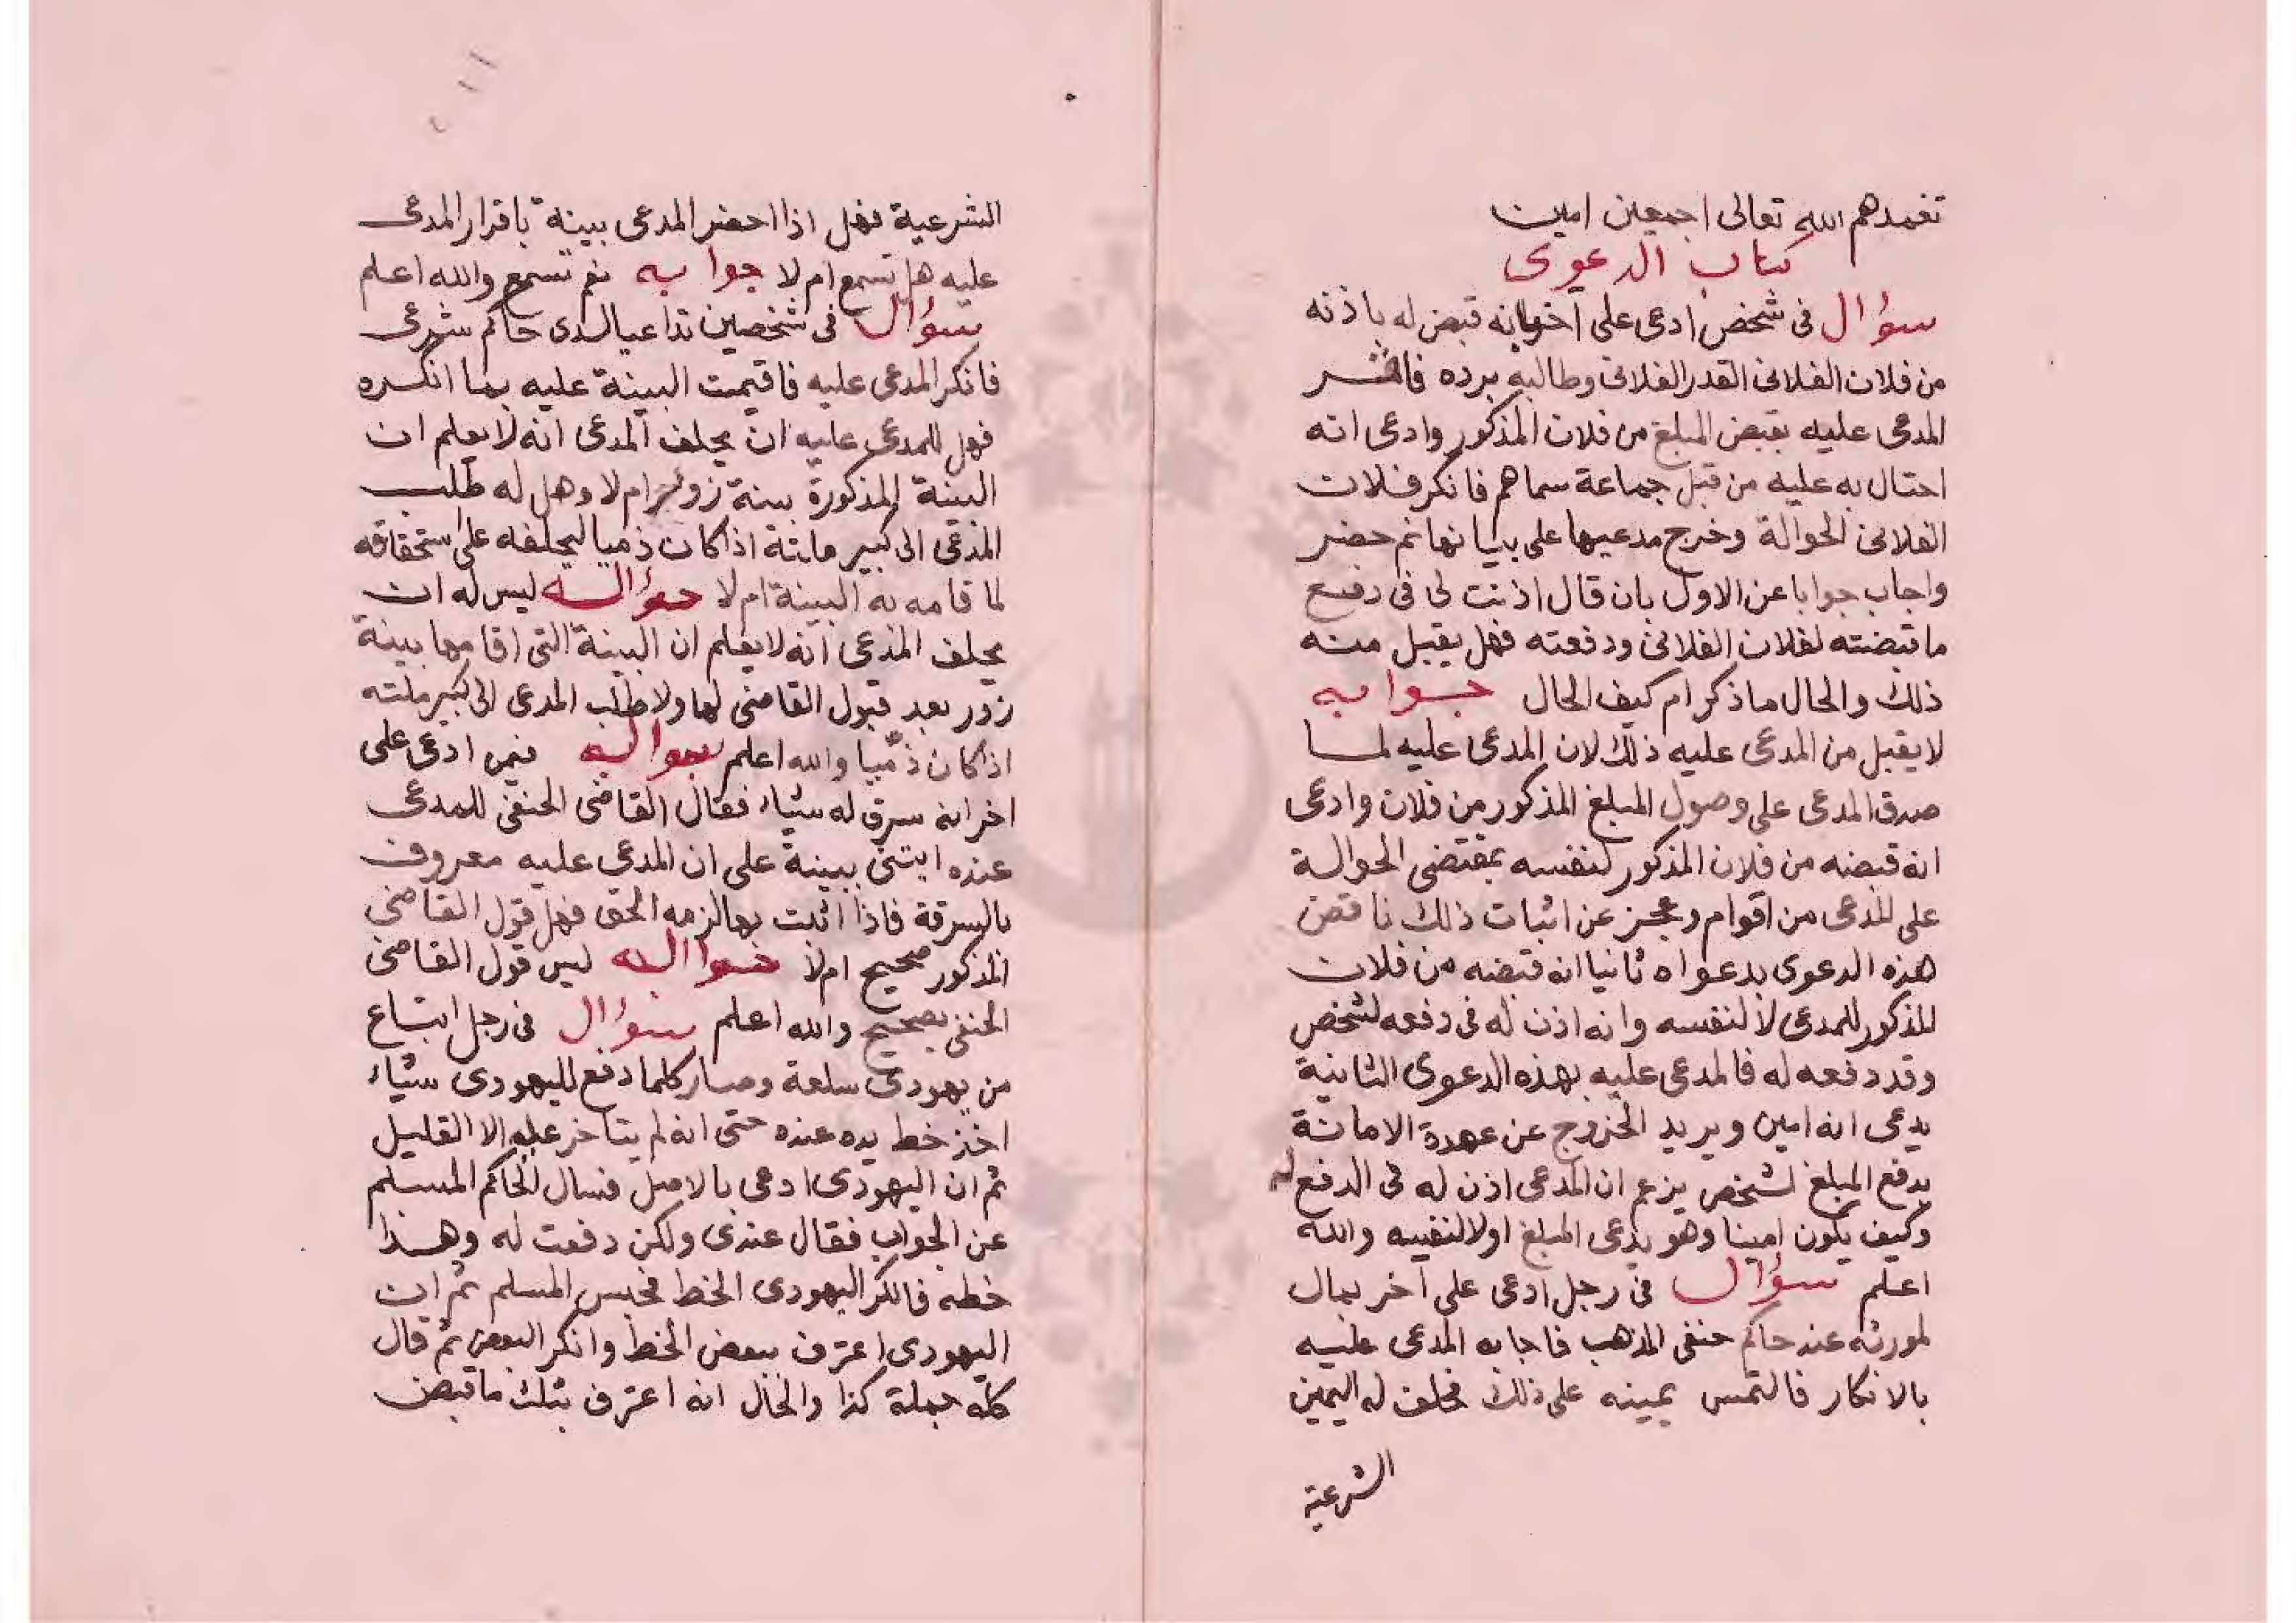 تغمدهم الله تعالى اجمعين امين
كتاب الدعوى
سؤال فى شخص ادعى على اخر بانه قبض له باذنه
من فلان الفلانى القدر الفلانى وطالبه برده فاقر
المدعى عليه بقبض المبلغ من فلان المذكور وادعى انه
احتال به عليه من قبل جماعة سماهم فانكر فلان
الفلانى الحوالة وخرج مدعيها على بيانها ثم حضر
واجاب جوابا عن الاول بان قال اذنت لى فى دفع
ما قبضته لفلان الفلانى ودفعته فهل يقبل منه
ذلك والحال ما ذكر ام كيف الحال جوابه
لا يقبل من المدعى عليه ذلك لان المدعى عليه لما
صدق المدعى على وصول المبلغ المذكور من فلان وادعى
انه قبضه من فلان المذكور لنفسه بمقتضى الحوالة
على المدعى من اقوام وعجز عن اثبات ذلك ناقض
هذه الدعوى بدعواه ثانيا انه قبضه من فلان
المذكور للمدعى لا لنفسه وانه اذن له فى دفعه لشخص
وقد دفعه له فالمدعى عليه بهذه الدعوى الثانية
يدعى انه امين ويريد الخروج عن عهدة الامانة
بدفع المبلغ لشخص يزعم ان المدعى اذن له فى الدفع له
وكيف يكون امينا وهو يدعى المبلغ اولا لنفسه والله
اعلم سؤال فى رجل ادعى على اخر بمال
لمورثه عند حاكم حنفى المذهب فاجابه المدعى عليه
بالانكار فالتمس يمينه على ذلك فحلف له اليمين
الشرعية
الشرعية فهل اذا احضر المدعى بينة باقرار المدعى
عليه هل تسمع ام لا جوابه نعم تسمع والله اعلم
سؤال فى شخصين تداعيا لدى حاكم شرعى
فانكر المدعى عليه فاقيمت البينة عليه بما انكره
فهل للمدعى عليه ان يحلف المدعى انه لا يعلم ان
البينة المذكورة بينة زور ام لا وهل له طلب
المدعى الى كبير ملته اذا كان ذميا ليحلفه على استحقاقه
لما قامه به البينة ام لا جوابه ليس له ان
يحلف المدعى انه لا يعلم ان البينة التى اقامها بينة
زور بعد قبول القاضى لها ولا طلب المدعى الى كبير ملته
اذا كان ذميا والله اعلم سؤال فيمن ادعى على
اخر انه سرق له شياء فقال القاضى الحنفى للمدعى
عنده ايتنى ببينة على ان المدعى عليه معروف
بالسرقة فاذا اثبت بها لزمه الحق فهل قول القاضى
المذكور صحيح ام لا جوابه ليس قول القاضى
الحنفى بصحيح والله اعلم سؤال فى رجل ابتاع
من يهودى سلعة وصار كلما دفع لليهودى شياء
اخذ خط يده عنده حتى انه لم يتاخر عليه الا القليل
ثم ان اليهودى ادعى بالاصل فسال الحاكم المسلم
عن الجواب فقال عندى ولكن دفعت له وهذا
خطه فانكر اليهودى الخط فحبس المسلم ثم ان
اليهودى اعترف ببعض الخط وانكر البعض ثم قال
كله جملة كذا والحال انه اعترف بتلك ما قبض